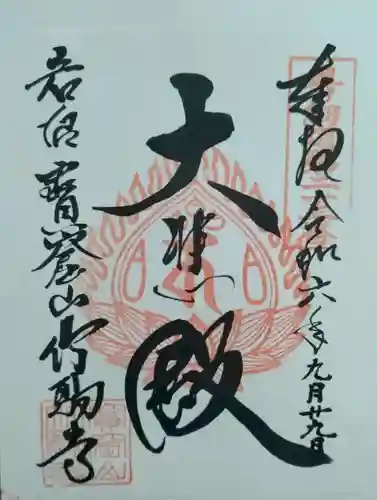 奉拝 令和六年九月廿九日
大悲殿
岩沼 寳窟山竹駒寺